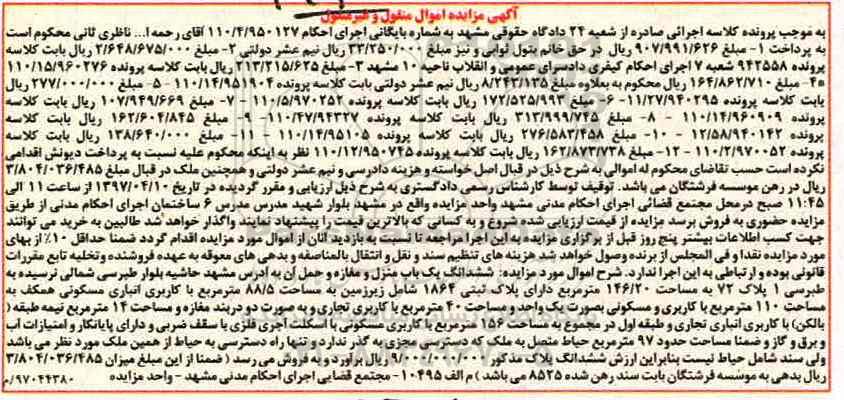 آگهی مزایده اموال منقول و غیرمنقول
به موجب پرونده کلاسه اجرائی صادره از شعبه ۲۴ دادگاه حقوقی مشهد به شماره بایگانی اجرای احکام ۱۱۰/۴/۹۵۰۱۲۷ آقای رحمه ا... ناظری ثانی محکوم است
به پرداخت ۱- مبلغ ۹۰۷/۹۹۱/۶۲۶ ریال در حق خانم بتول نوابی و نیز مبلغ ۳۳/۲۵۰/۰۰۰ ریال نیم عشر دولتی ۲- مبلغ ۲/۶۴۸/۶۷۵/۰۰۰ ریال بابت کلاسه
پرونده ۹۴۲۵۵۸ شعبه ۷ اجرای احکام کیفری دادسرای عمومی و انقلاب ناحیه ۱۰ مشهد ۳- مبلغ ۲۱۳/۲۱۵/۶۲۵ ریال بابت کلاسه پرونده ۱۱۰/۱۵/۹۶۰۲۷۶
۴- مبلغ ۱۶۴/۸۶۲/۷۱۰ ریال محکوم به بعلاوه مبلغ ۸/۲۴۳/۱۳۵ ریال نیم عشر دولتی بابت کلاسه پرونده ۱۱۰/۱۴/۹۵۱۹۰۴ - ۵- مبلغ ۲۷۷/۰۰۰/۰۰۰ ریال
بابت کلاسه پرونده ۱۱/۲۷/۹۴۰۲۹۵- ۶- مبلغ ۱۷۲/۵۲۵/۹۹۳ ریال بابت کلاسه پرونده ۱۱۰/۵/۹۷۰۲۵۲ - ۷- مبلغ ۱۰۷/۹۴۹/۶۶۹ ریال بابت کلاسه
پرونده ۱۱۰/۱۴/۹۶۰۹۰۹ - ۸- مبلغ ۳۱۳/۹۹۹/۷۴۵ ریال بابت کلاسه پرونده ۱۱۰/۴۷/۹۴۳۲۷- ۹- مبلغ ۱۶۲/۶۰۴/۸۴۵ ریال بابت کلاسه
پرونده ۱۲/۵۸/۹۴۰۱۴۲ - ۱۰- مبلغ ۲۷۶/۵۸۳/۴۵۸ ریال بابت کلاسه پرونده ۱۱۰/۱۴/۹۵۱۰۵ - ۱۱- مبلغ ۱۳۸/۶۴۰/۰۰۰ ریال بابت کلاسه
پرونده ۱۱۰/۲/۹۷۰۰۵۲ - ۱۲- مبلغ ۱۶۲/۸۷۳/۷۳۸ ریال بابت کلاسه پرونده ۱۱۰/۱۲/۹۵۰۷۴۵ نظر به اینکه محکوم علیه نسبت به پرداخت دیونش اقدامی
نکرده است حسب تقاضای محکوم له اموالی به شرح ذیل در قبال اصل خواسته و هزینه دادرسی و نیم عشر دولتی و همچنین ملک در قبال مبلغ ۳/۸۰۴/۰۳۶/۴۸۵
ریال در رهن موسسه فرشتگان می باشد. توقیف توسط کارشناس رسمی دادگستری به شرح ذیل ارزیابی و مقرر گردیده در تاریخ ۱۳۹۷/۰۴/۱۰ از ساعت ۱۱ الی
۱۱:۴۵ صبح درمحل مجتمع قضائی اجرای احکام مدنی مشهد واحد مزایده واقع در مشهد بلوار شهید مدرس مدرس ۶ ساختمان اجرای احکام مدنی از طریق
مزایده حضوری به فروش برسد مزایده از قیمت ارزیابی شده شروع و به کسانی که بالاترین قیمت را پیشنهاد نمایند واگذار خواهد شد طالبین به خرید می توانند
جهت کسب اطلاعات بیشتر پنج روز قبل از برگزاری مزایده به این اجرا مراجعه تا نسبت به بازدید آنان از اموال مورد مزایده اقدام گردد ضمنا حداقل ۱۰٪ از بهای
مورد مزایده نقدا و فی المجلس از برنده وصول خواهد شد هزینه های تنظیم سند و نقل و انتقال بالمناصفه و بدهی های معوقه به عهده فروشنده و تخلیه تابع مقررات
قانونی بوده و ارتباطی به این اجرا ندارد. شرح اموال مورد مزایده: ششدانگ یک باب منزل و مغازه و حمل آن به آدرس مشهد حاشیه بلوار طبرسی شمالی نرسیده به
طبرسی ۱ پلاک ۷۲ به مساحت ۱۴۶/۲۰ مترمربع دارای پلاک ثبتی ۱۸۶۴ شامل زیرزمین به مساحت ۸۸/۵ مترمربع با کاربری انباری مسکونی همکف به
مساحت ۱۱۰ مترمربع با کاربری و مسکونی بصورت یک واحد و مساحت ۴۰ مترمربع با کاربری تجاری و به صورت دو دربند مغازه و مساحت ۱۴ مترمربع نیمه طبقه (
بالکن) با کاربری انباری تجاری و طبقه اول در مجموع به مساحت ۱۵۶ مترمربع با کاربری مسکونی با اسکلت آجری فلزی با سقف ضربی و دارای پایانکار و امتیازات آب
و برق و گاز و ضمنا مساحت حدود ۹۷ مترمربع حیاط متصل به ملک که دسترسی مجزی به گذر ندارد و تنها راه دسترسی به حیاط از همین ملک مورد نظر می باشد
ولی سند شامل حیاط نیست بنابراین ارزش ششدانگ پلاک مذکور ۹/۰۰۰/۰۰۰/۰۰۰ ریال برآورد و به فروش می رسد ( ضمنا از این مبلغ میزان ۳/۸۰۴/۰۳۶/۴۸۵
ریال بدهی به موسسه فرشتگان بابت سند رهن شده ۸۵۲۵ می باشد ) م الف ۱۰۴۹۵- مجتمع قضایی اجرای احکام مدنی مشهد - واحد مزایده ۹۷۰۴۴۳۸۰/م